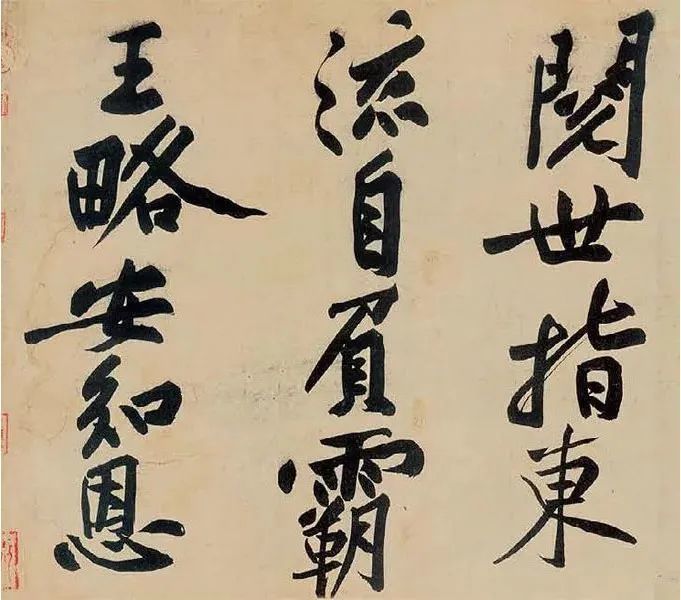 閱世指東
流自負霸
王略安知恩